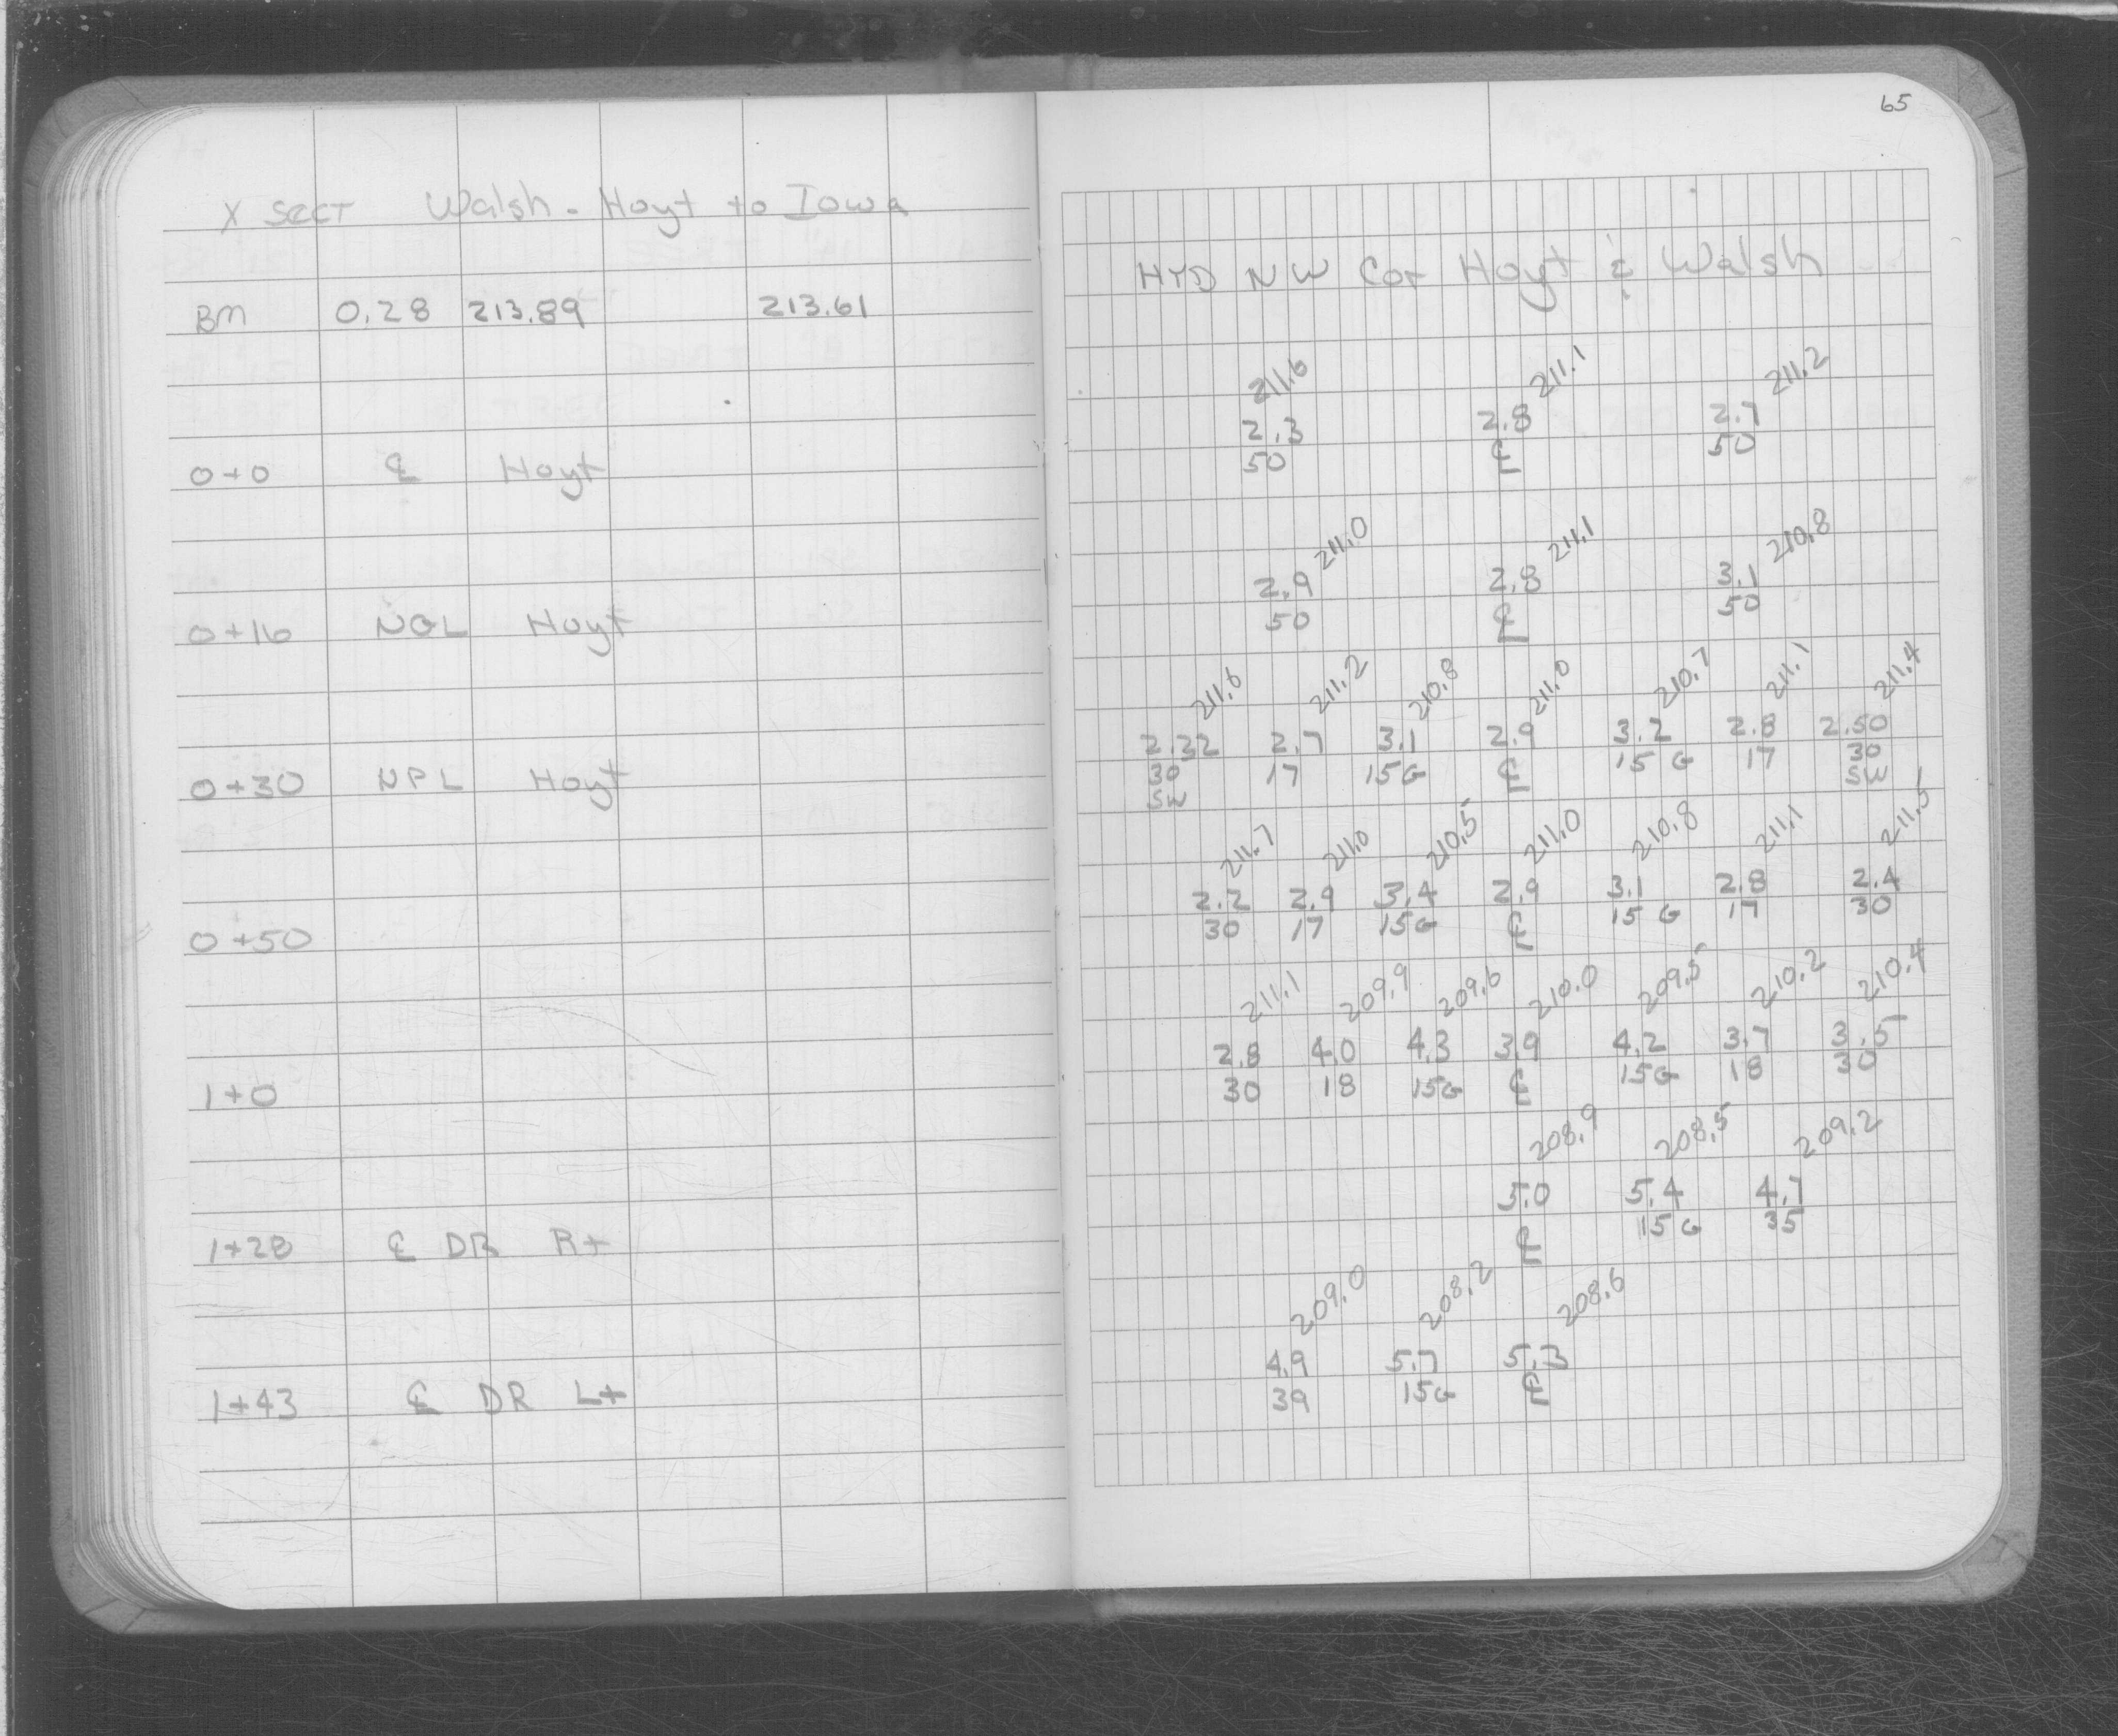 X SECT Walsh - Hoyt to Iowa
BM 0.28 213.89 213.61
0+0 ℄ Hoyt
0+16 NGL Hoyt
0+30 NPL Hoyt
0+50
1+0
1+28 ℄ DR Rt
1+43 ℄ DR Lt
65
HYD NW Cor Hoyt & Walsh
211.6 211.1 211.2
2.3 2.8 2.7
50 ℄ 50
211.0 211.1 210.8
2.9 2.8 3.1
50 ℄ 50
211.6 211.2 210.8 211.0 210.7 211.1 211.4
2.32 2.7 3.1 2.9 3.2 2.8 2.50
30 17 15G ℄ 15 G 17 30
SW SW
211.7 211.0 210.5 211.0 210.8 211.1 211.5
2.2 2.9 3.4 2.9 3.1 2.8 2.4
30 17 15G ℄ 15 G 17 30
211.1 209.9 209.6 210.0 209.5 210.2 210.4
2.8 4.0 4.3 3.9 4.2 3.7 3.5
30 18 15G ℄ 15G 18 30
208.9 208.5 209.2
5.0 5.4 4.7
℄ 15 G 35
209.0 208.2 208.6
4.9 5.7 5.3
39 15G ℄